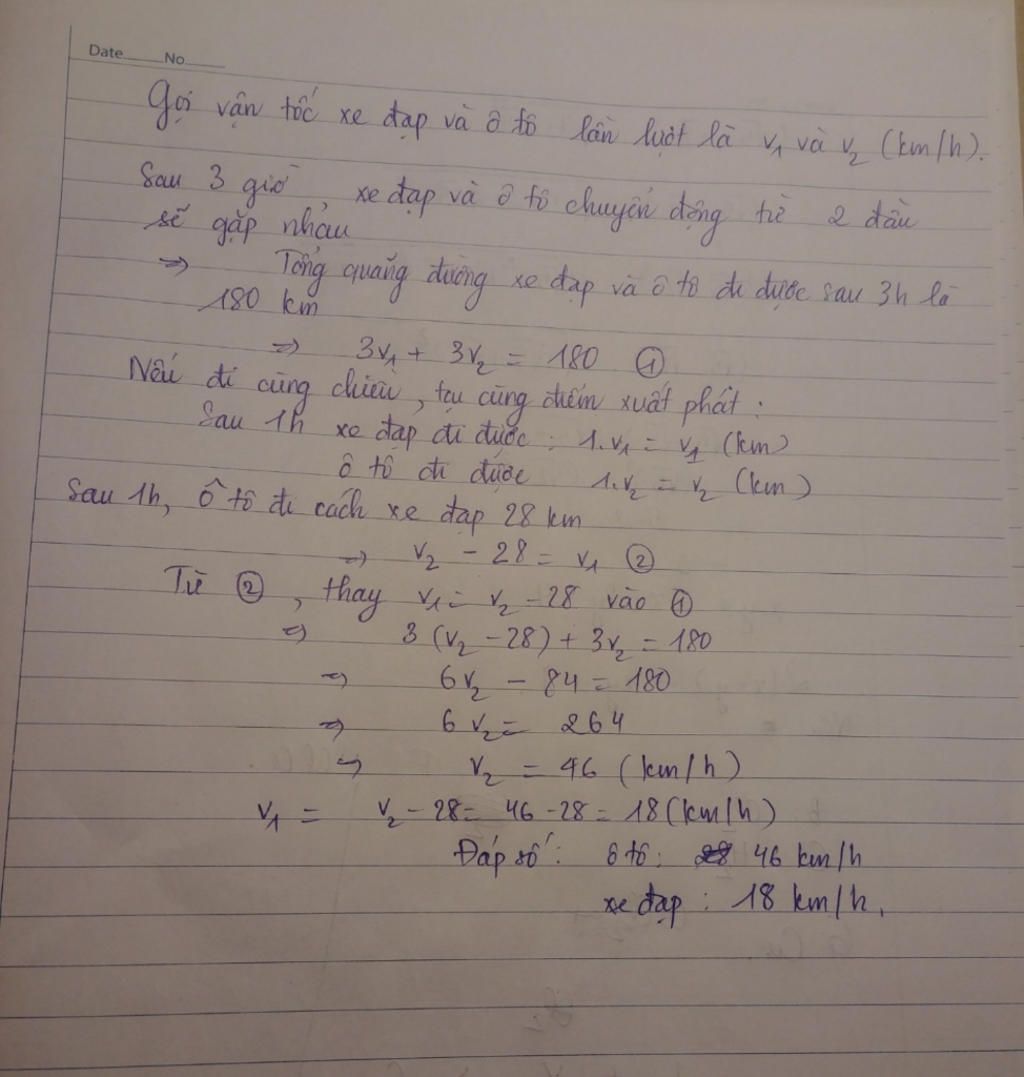 Date No
Gọi vận tốc xe đạp và ô tô lần lượt là v₁ và v₂ (km/h).
Sau 3 giờ, xe đạp và ô tô chuyển động từ 2 đầu
sẽ gặp nhau
=> Tổng quãng đường xe đạp và ô tô đi được sau 3h là
180 km
=> 3v₁ + 3v₂ = 180 ①
Nếu đi cùng chiều, tại cùng điểm xuất phát:
Sau 1h xe đạp đi được: 1.v₁ = v₁ (km)
ô tô đi được 1.v₂ = v₂ (km)
Sau 1h, Ô tô đi cách xe đạp 28 km
=> v₂ - 28 = v₁ ②
Từ ②, thay v₁ = v₂ - 28 vào ①
=> 3 (v₂ - 28) + 3v₂ = 180
=> 6v₂ - 84 = 180
=> 6v₂ = 264
=> v₂ = 46 (km/h)
v₁ = v₂ - 28 = 46 - 28 = 18 (km/h)
Đáp số: ô tô: 46 km/h
xe đạp: 18 km/h.